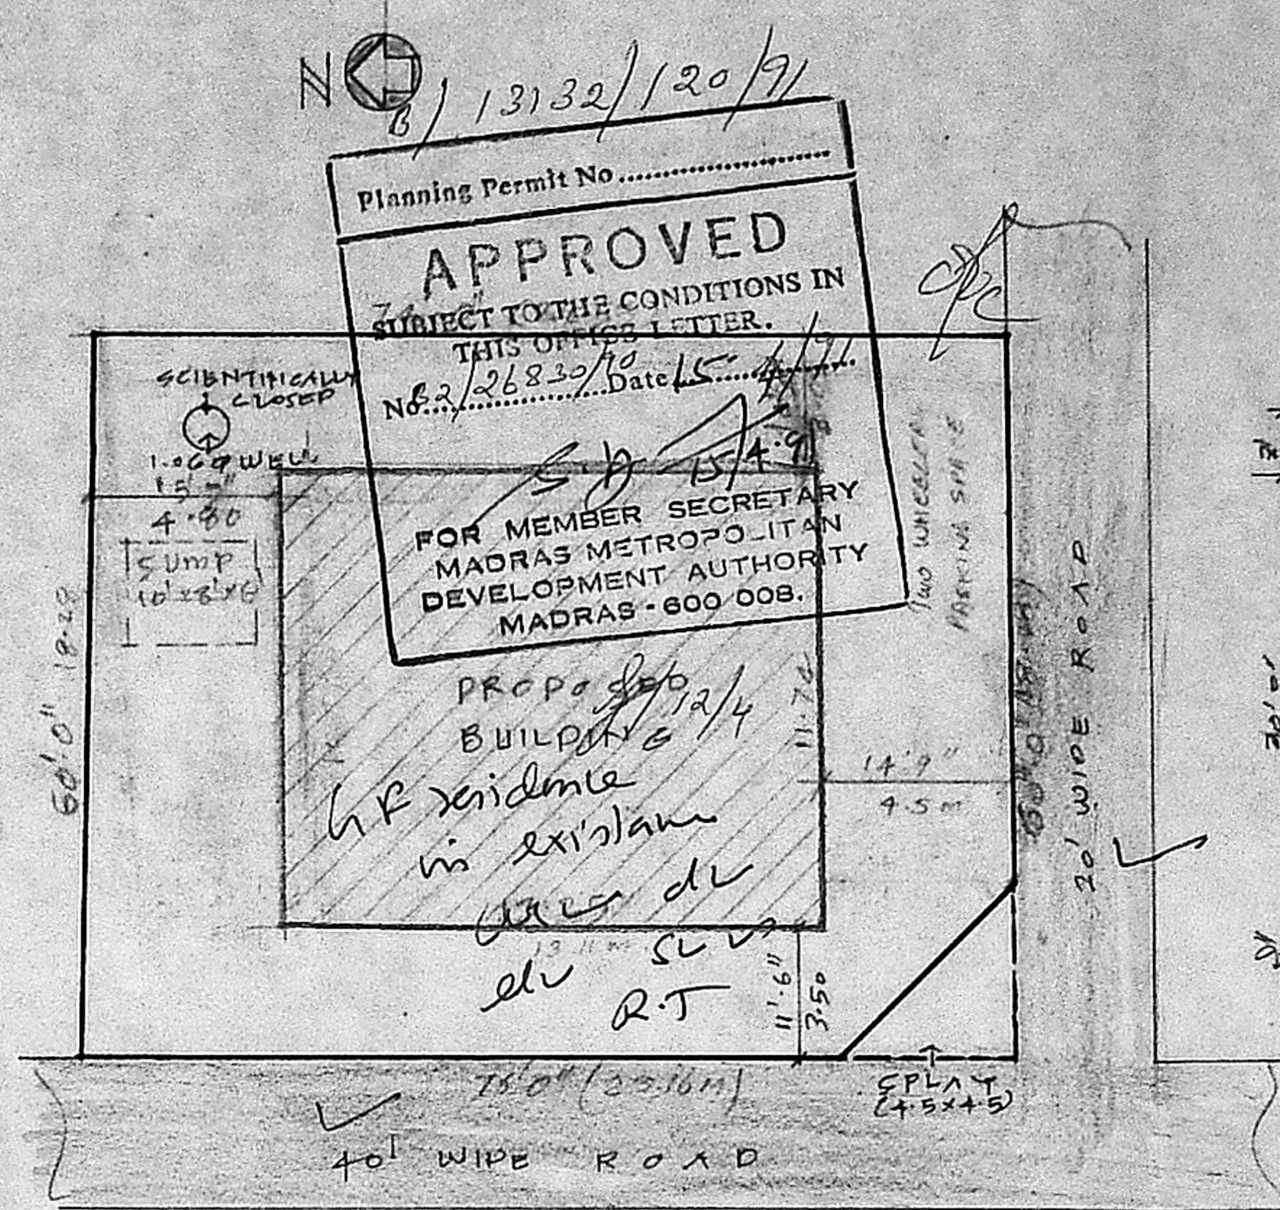 N
B/13132/120/91
Planning Permit No
APPROVED
SUBJECT TO THE CONDITIONS IN
THIS OFFICE LETTER.
No. B2/26830/90 Date 15/4/91
15/4.91
FOR MEMBER SECRETARY
MADRAS METROPOLITAN
DEVELOPMENT AUTHORITY
MADRAS - 600 008.
SCIENTIFICALLY
CLOSED
WELL
15'
4.80
SUMP
10'x8'x6'
60'.0" 18.28
TWO WHEELER
PARKING SPACE
PROPOSED
BUILDING
12/4
GF residence
in existance
R.T
11.70
14'9"
4.5m
11'.6"
3.50
20' WIDE ROAD
SPLAY
(4.5x4.5)
75'.0" (23.16m)
40' WIDE ROAD